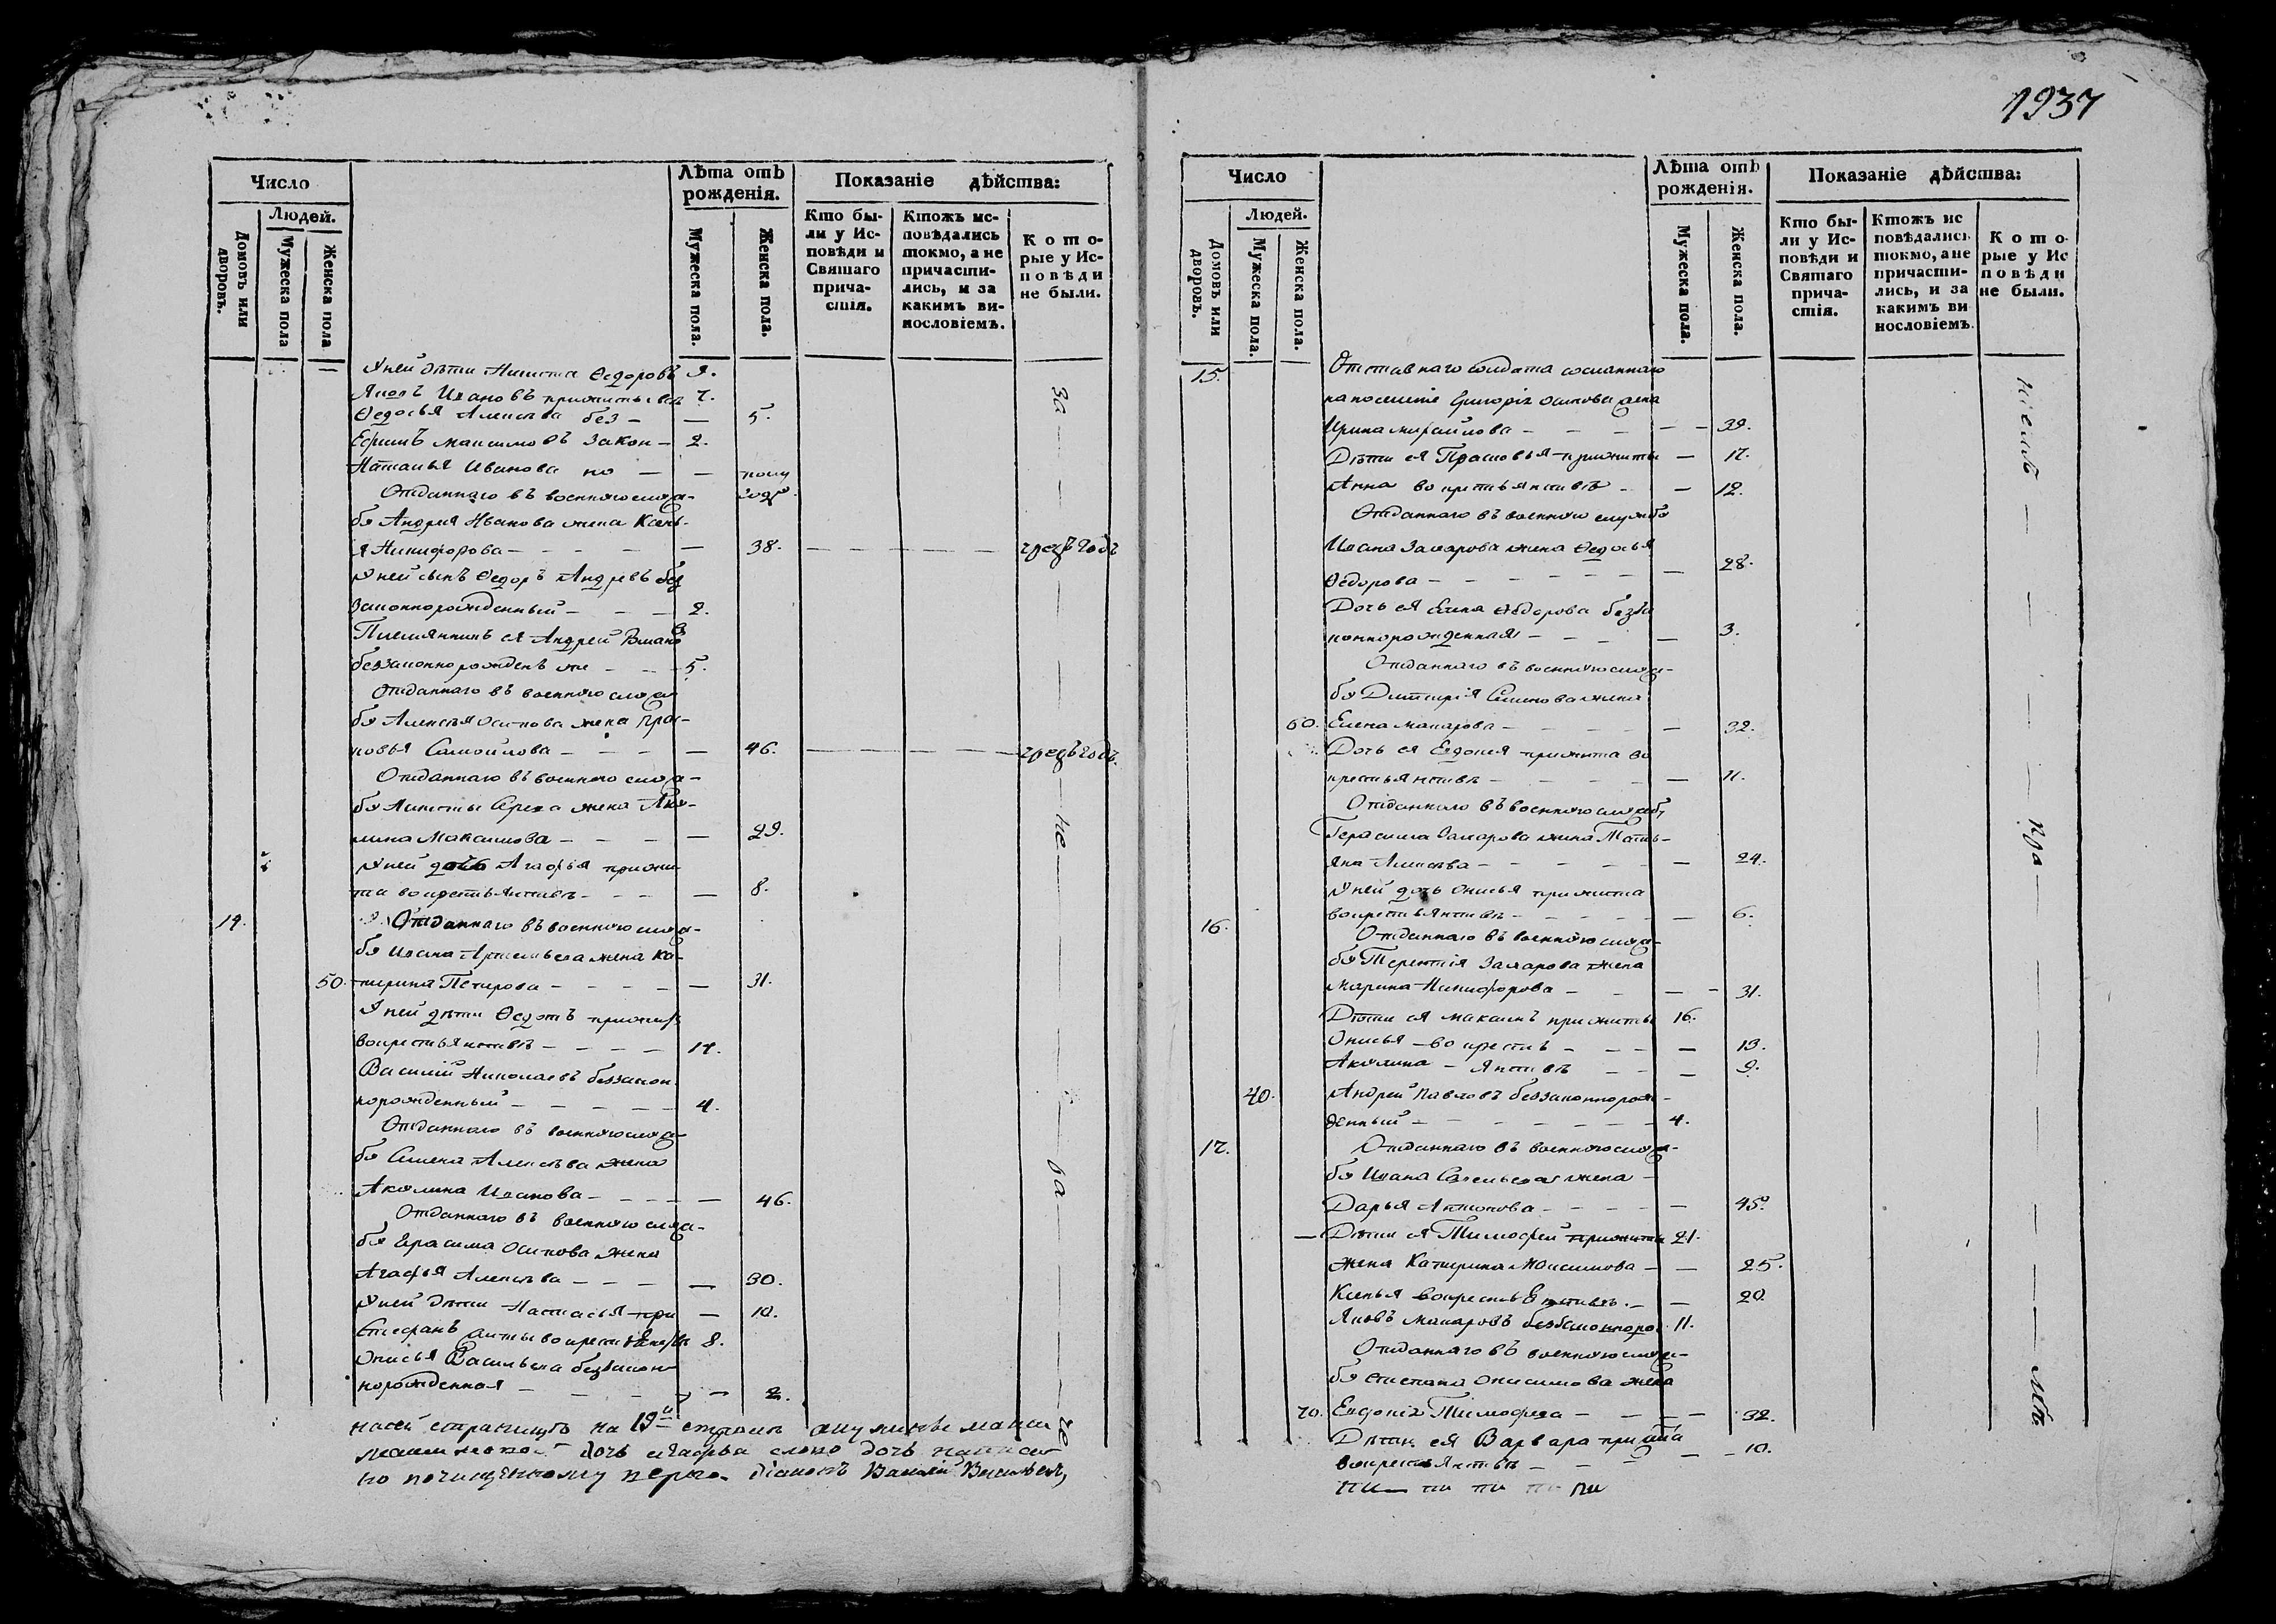 1937
Число
Людей.
Домовъ или дворовъ.
Мужеска пола
Женска пола
Лѣта отъ рожденія.
Мужеска пола.
Женска пола.
Показаніе дѣйства:
Кто бы-
ли у Ис-
повѣди и
Святаго
прича-
стія.
Ктожъ ис-
повѣдались
токмо, а не
причасти-
лись, и за
какимъ ви-
нословіемъ.
Кото-
рые у Ис-
повѣди
не были.
У ней дѣти Никита Ѳедоровъ 9.
Яковъ Ивановъ прижитые 7.
Ѳедосья Алексѣва без – — 5.
Ефимъ Максимовъ закон – 2.
Наталья Иванова но — — полу
Отданнаго въ военную служ- года
бу Андрея Иванова жена Ксень-
я Никифорова — 38. — чрезъ годъ
У ней сынъ Ѳедоръ Андревъ без
законнорожденный — 2.
Племянникъ ея Андрей
беззаконнорожденъ же — 5.
Отданнаго въ военную служ
бу Алексѣя Осипова жена Прас-
ковья Самойлова — 46. — чрезъ годъ.
Отданнаго въ военную служ-
бу Никиты жена Аку-
лина Максимова — 29.
У ней дочь Агафья прижи-
та во крестьянствѣ — 8.
14. Отданнаго въ военную служ-
бу Ивана Артемьева жена Ка-
50. тирина Петрова — 31.
У ней дѣти Ѳедотъ прижитъ
во крестьянствѣ — 14.
Василий Николаевъ беззакон
норожденный — 4.
Отданнаго въ военную служ-
бу Семена Алексѣва жена
Акулина Иванова — 46.
Отданнаго въ военную служ-
бу Герасима Осипова жена
Агафья Алексѣва — 30.
У ней дѣти Настасья при — 10.
Стефанъ житы во крестьянствѣ 8.
Онисья Васильева беззакон
норожденная — 2.
За не ра че
на сей страницѣ на 19й строкѣ
дочь Агафья слово дочь
по почищенному діаконъ Василий Васильевъ
Число
Людей.
Домовъ или дворовъ.
Мужеска пола.
Женска пола.
Лѣта отъ рожденія.
Мужеска пола.
Женска пола.
Показаніе дѣйства:
Кто бы-
ли у Ис-
повѣди и
Святаго
прича-
стія.
Ктожъ ис
повѣдались
токмо, а не
причасти-
лись, и за
какимъ ви
нословіемъ.
Кото-
рые у Ис
повѣди
не были.
15. Отставнаго солдата сосланнаго
на поселеніе Григорія Осипова жена
Ирина Михайлова — 39.
Дѣти ея Прасковья прижиты — 17.
Анна во крестьянствѣ — 12.
Отданнаго въ военную службу
Ивана Захарова жена Ѳедосья
Ѳедорова — 28.
Дочь ея Елена Ѳедорова безза
коннорожденная — 3.
Отданнаго въ военную служ-
бу Димитрія Семенова жена
60. Елена Макарова — 32.
Дочь ея Евдокея прижита во
крестьянствѣ — 11.
Отданнаго въ военную службу
Герасима Захарова жена Татья-
яна Алексѣва — 24.
У ней дочь Онисья прижита
во крестьянствѣ — 6.
16. Отданнаго въ военную служ-
бу Терентія Захарова жена
Марина Никифорова — 31.
Дѣти ея Максимъ прижиты 16.
Онисья – во кресть — 13.
Акулина – янствѣ — 9.
40. Андрей Павловъ беззаконнорож-
денный — 4.
17. Отданнаго въ военную служ-
бу Ивана Савельева жена
Дарья Антонова — 45.
— Дѣти ея Тимофей прижиты 21.
жена Катирина Максимова — 25.
Ксенья во крестьянствѣ. — 20.
Яковъ Макаровъ беззаконнорож. 11.
Отданнаго въ военную служ-
бу Степана Онисимова жена
70. Евдокія Тимофеева — 32.
Дѣти ея Варвара прижита — 10.
во крестьянствѣ —
ніемъ